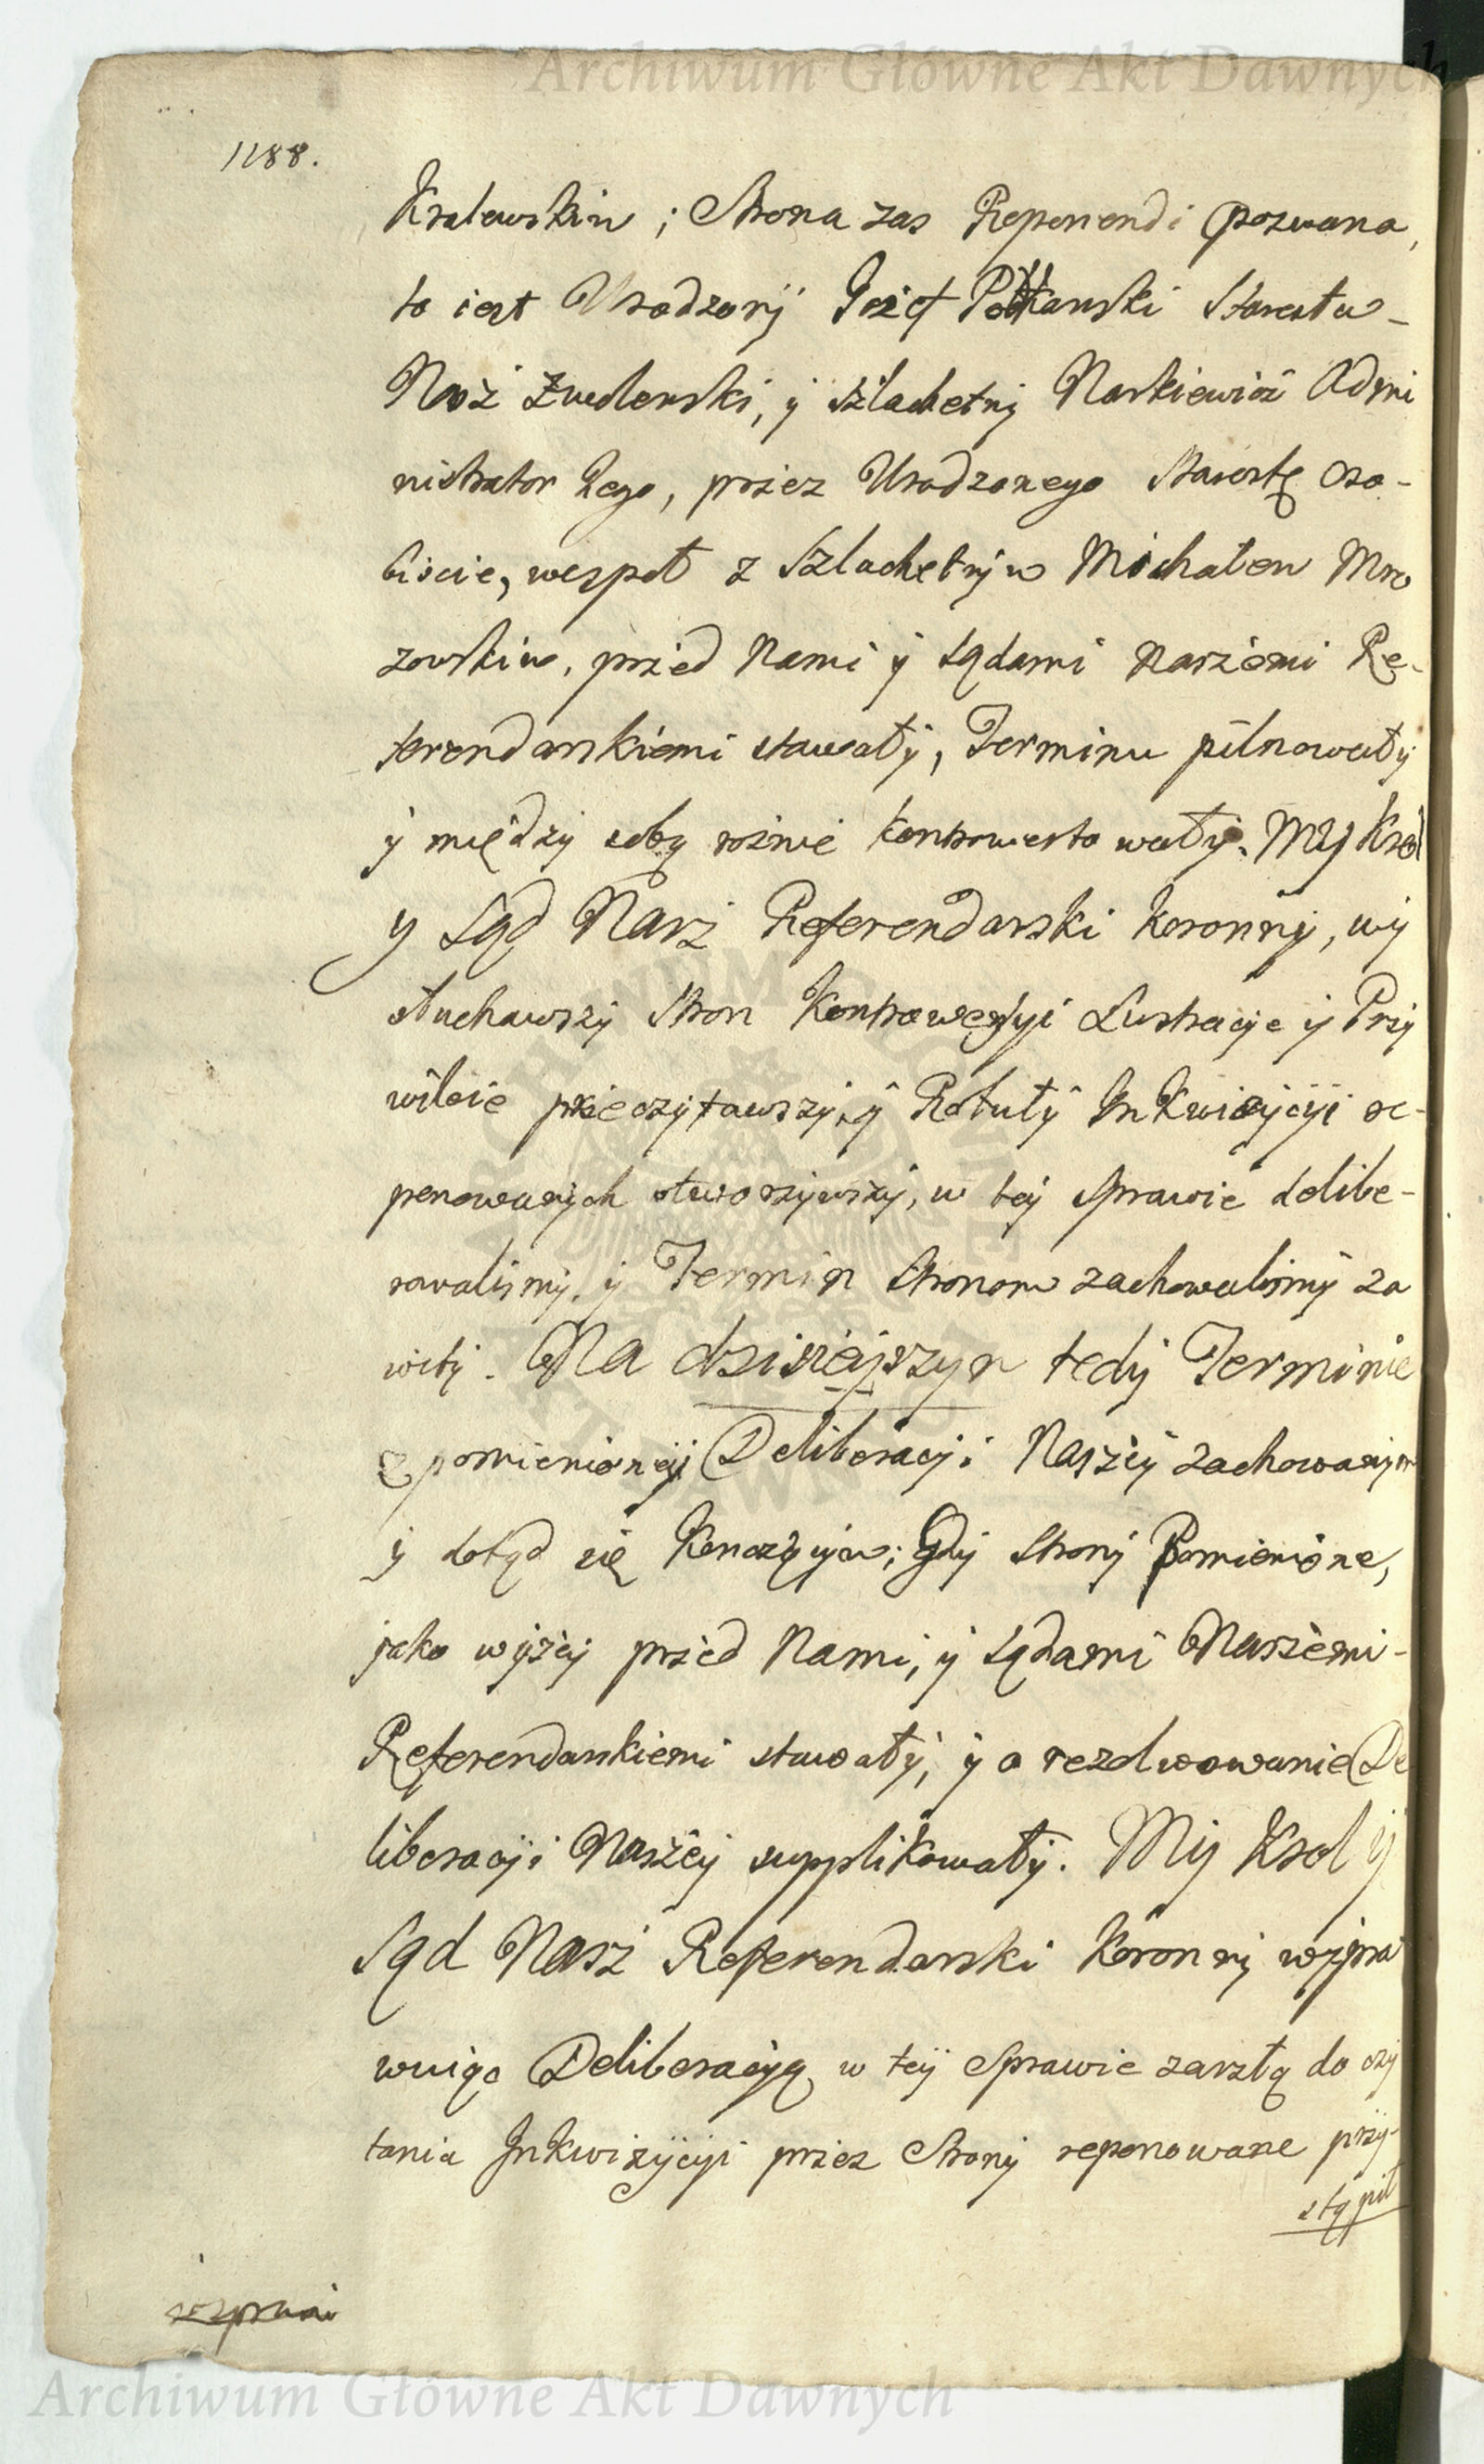 Archiwum Główne Akt Dawnych
1188.
Kralewskim ; Strona zas Reponendi pozwana,
to iest Urodzony Jozef Potkanski Starosta
Nasz Zwolenski, y Szlachetny Markiewicz Admi
nistrator Jego, przez Urodzonego Starostę oso-
biscie, wespoł z Szlachetnym Michałem Mro
zowskim, przed Nami y Sądami Naszemi Re-
ferendarskiemi stawały, Terminu pilnowały
y między sobą rożnie kontrowertowały. My Krol
y Sąd Nasz Referendarski Koronny, wy
słuchawszy Stron Kontrowersyi Lustracje y Przy
wileie przeczytawszy, y Rotuły Inkwizycyi re-
ponowanych otworzywszy, w tey Sprawie delibe-
rowalismy, y Termin Stronom zachowalismy za
wity. Na dzisieyszym tedy Terminie
z pomienioney Deliberacyi Naszey zachowanym
y dotąd się Kończącym; Gdy Strony Pomienione,
jako wyżey przed Nami, y Sądami Naszemi
Referendarskiemi stawały, y o rezolwowanie De
liberacyi Naszey supplikowały. My Krol y
Sąd Nasz Referendarski Koronny wypra
wuiąc Deliberacyą w tey Sprawie zaszłą do czy
tania Inkwizycyi przez Strony reponowane przy-
stąpił
Archiwum Główne Akt Dawnych